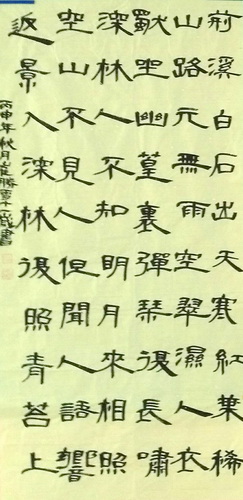 荊溪白石出天寒紅葉稀
山路元無雨空翠濕人衣
獨坐幽篁裏彈琴復長嘯
深林人不知明月來相照
空山不見人但聞人語響
返景入深林復照青苔上
丙申年秋月崔勝雪十一歲書